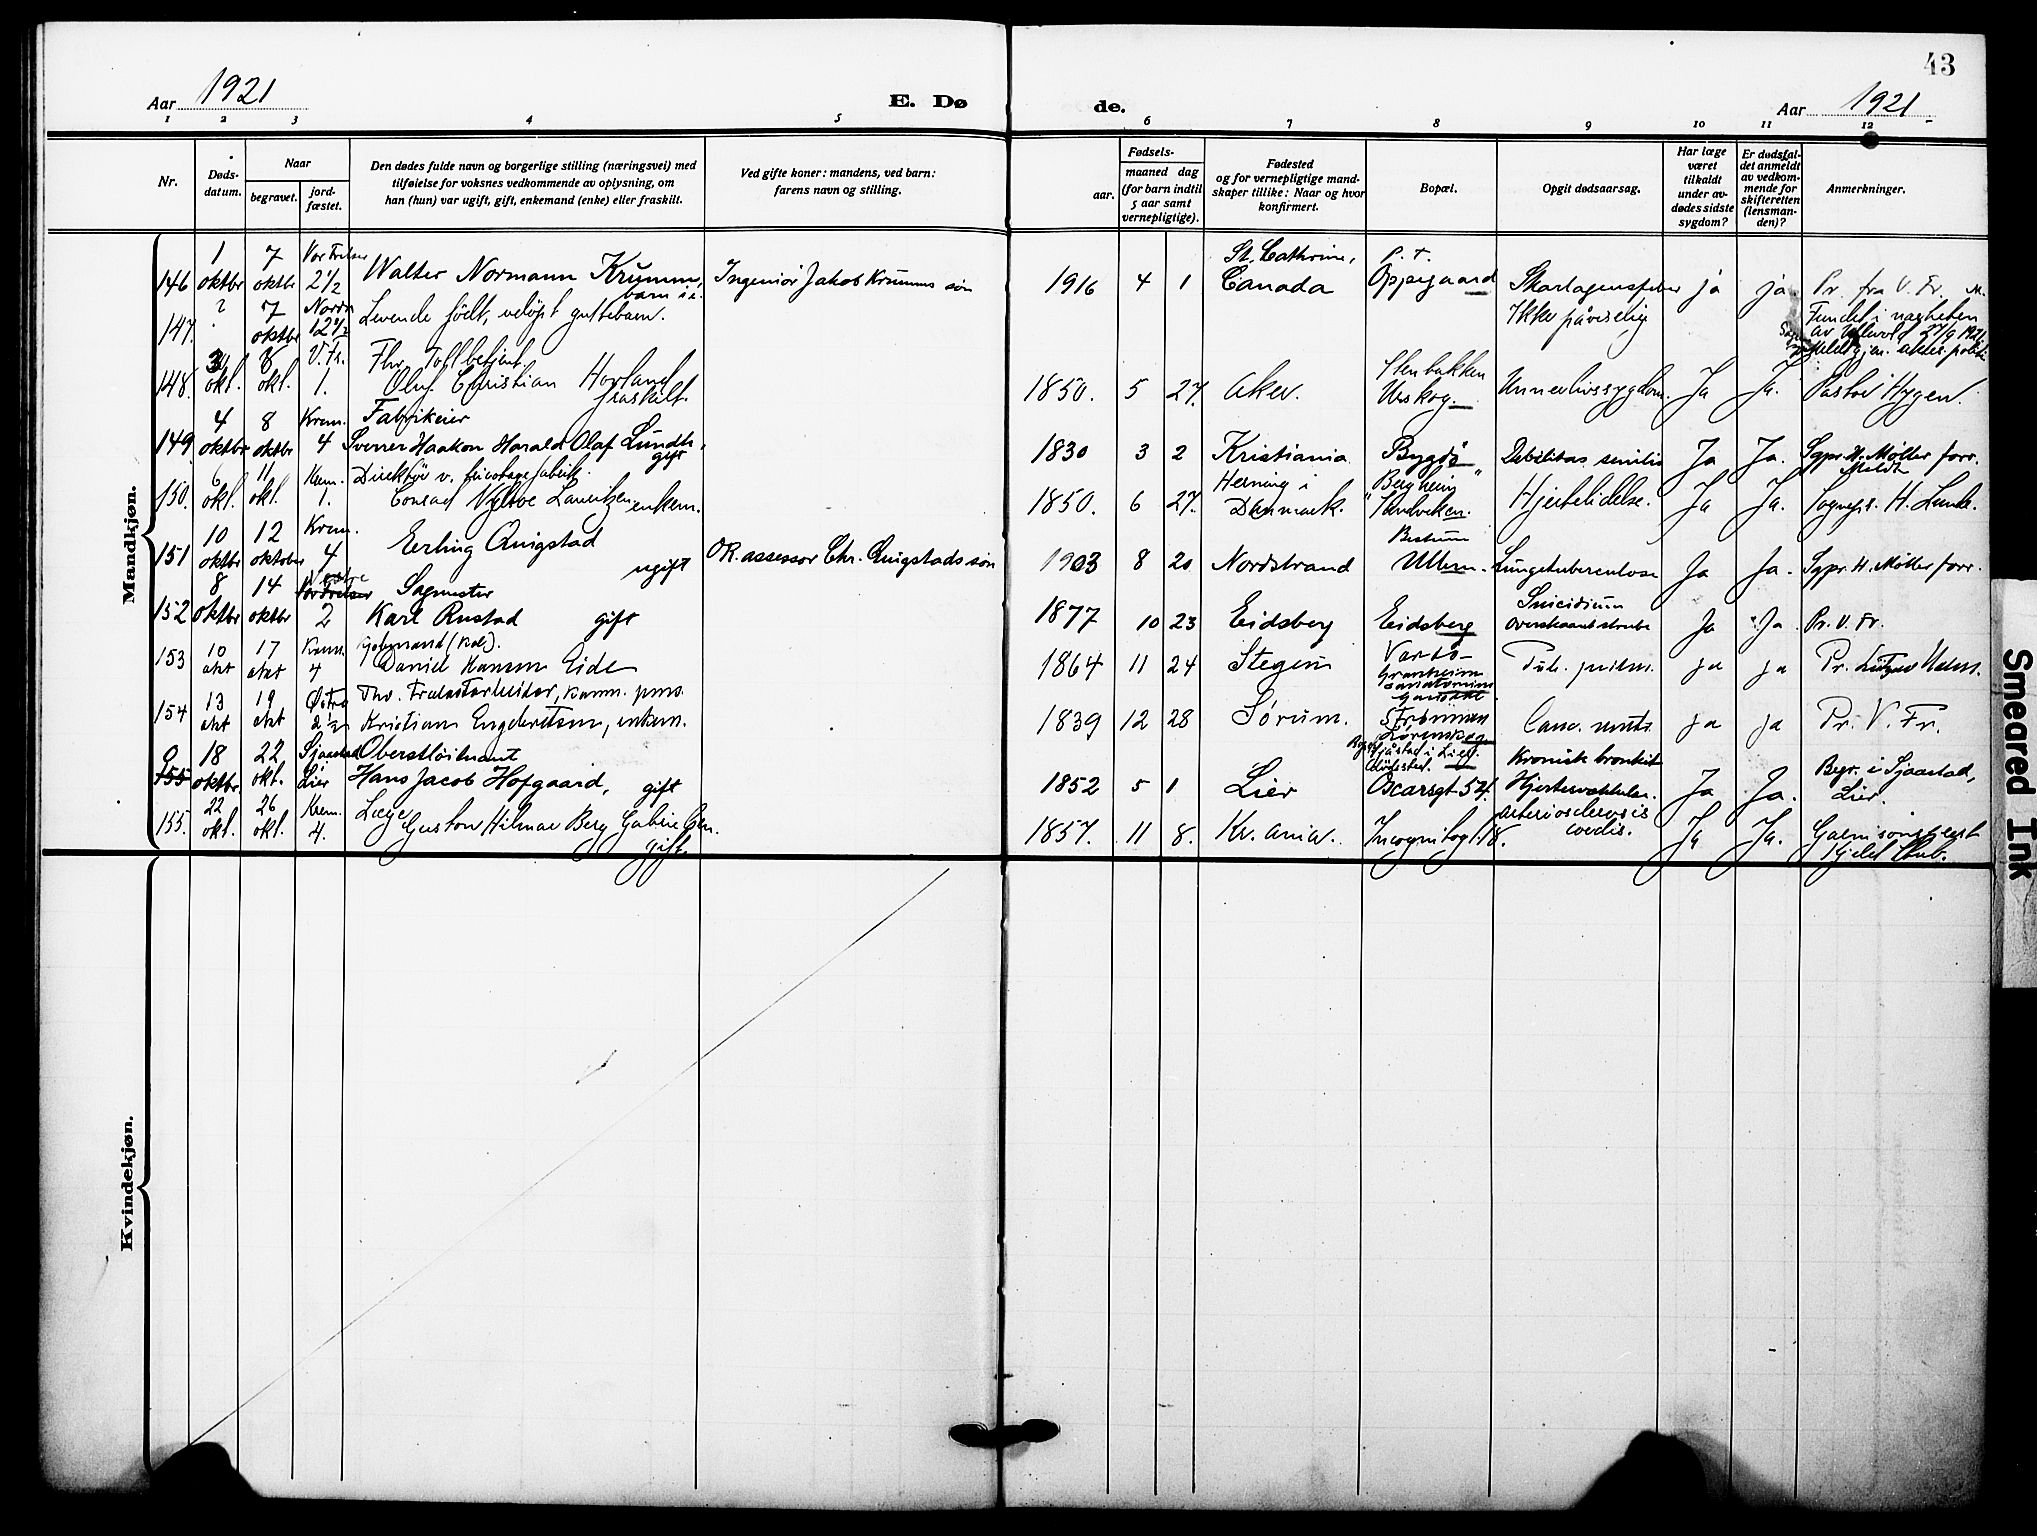 43
Aar 1921
E. Dø de.
Aar 1921
1 2 3 4 5 6 7 8 9 10 11 12
Nr.
Døds-
datum.
Naar
begravet.
jord-
fæstet.
Den dødes fulde navn og borgerlige stilling (næringsvei) med
tilføielse for voksnes vedkommende av oplysning, om
han (hun) var ugift, gift, enkemand (enke) eller fraskilt.
Ved gifte koner: mandens, ved barn:
farens navn og stilling.
Fødsels-
aar.
maaned dag
(for barn indtil
5 aar samt
vernepligtige).
Fødested
og for vernepligtige mand-
skaper tillike: Naar og hvor
konfirmert.
Bopæl.
Opgit dødsaarsag.
Har læge
været
tilkaldt
under av-
dødes sidste
sygdom?
Er dødsfal-
det anmeldt
av vedkom-
mende for
skifteretten
(lensman-
den)?
Anmerkninger.
Mandkjøn.
146 1 oktbr 7 oktbr Vor Frelser 2 1/2 Walter Normann Krumm, barn Ingeniør Jakob Krumms søn 1916 4 1 St. Cathrine, Canada p. t. Oppegaard Skarlagensfeber ja ja Pr. fra V. Fr.
147. ? 7 oktbr Nordre 12 1/2 Levende født, guttebarn. Ikke påviselig Fundet i nærheten av Ullevold 27/9 1921
148. 3 okt. 8 okt. V. Fr. 1. Fhv. Tollbetjent Oluf Christian Hovland fraskilt 1850. 5 27. Aker. Stenbakken Urskog. Ja Ja. Pastor Hygen.
149. 4 oktbr 8 oktbr Krem. 4 Fabrikeier Sverrer Haakon Harald Olaf Lundh, gift 1830 3 2 Kristiania Bygdø Debilitas senilis Ja Ja. Sgpr. H. Møller forr.
150. 6 okt. 11 okt. Krem. 1. Direktør v. tricotagefabrik. Conrad Lauritzen enkem. 1850. 6 27. Herning i Danmark. "Bergheim" Sandviken. Hjertelidelse. Ja Ja. Sognepr. H. Lunde.
151 10 oktbr 12 oktober Krem. 4 Erling Qvigstad ugift OR. assessor Chr. Qvigstads søn 1903 8 20 Nordstrand Bestum Ullern. Lungetuberculose Ja Ja. Sgpr. H. Møller forr.
152 8 oktbr 14 oktbr Vestre 2 Sagmester Karl Rustad gift 1877 10 23 Eidsberg Eidsberg Suicidium Overskaaret strube Ja Ja. Pr. V. Fr.
153 10 okt 17 okt Krem. 4 Daniel Hansen Eide 1864 11 24 Stegen Vardö Granheim sanatorium Gausdal Tub. pulm. ja ja
154 13 okt 19 okt Østre 2 1/2 Fhv. Kristian Engebretsen, enkem. 1839 12 28 Sørum. Strømmen Lørenskog Canc. ventr. ja ja Pr. V. Fr.
155 18 oktbr. 22 okt. Sjaastad Lier Oberstløitnant Hans Jacob Hofgaard, gift 1852 5 1 Lier Sjåstad i Lier Oscarsgt 54. Kronisk bronkit Ja Ja. Begr. i Sjaastad, Lier.
155. 22 okt. 26 okt. Krem. 4. Læge Gustav Hilmar Berg Gabrielsen. gift. 1857. 11 8. Kr.ania. Incognitogt. 18. arteriosclerosis cordis. Ja Ja. Garnisonsprest
Kvindekjøn.
Smeared Ink